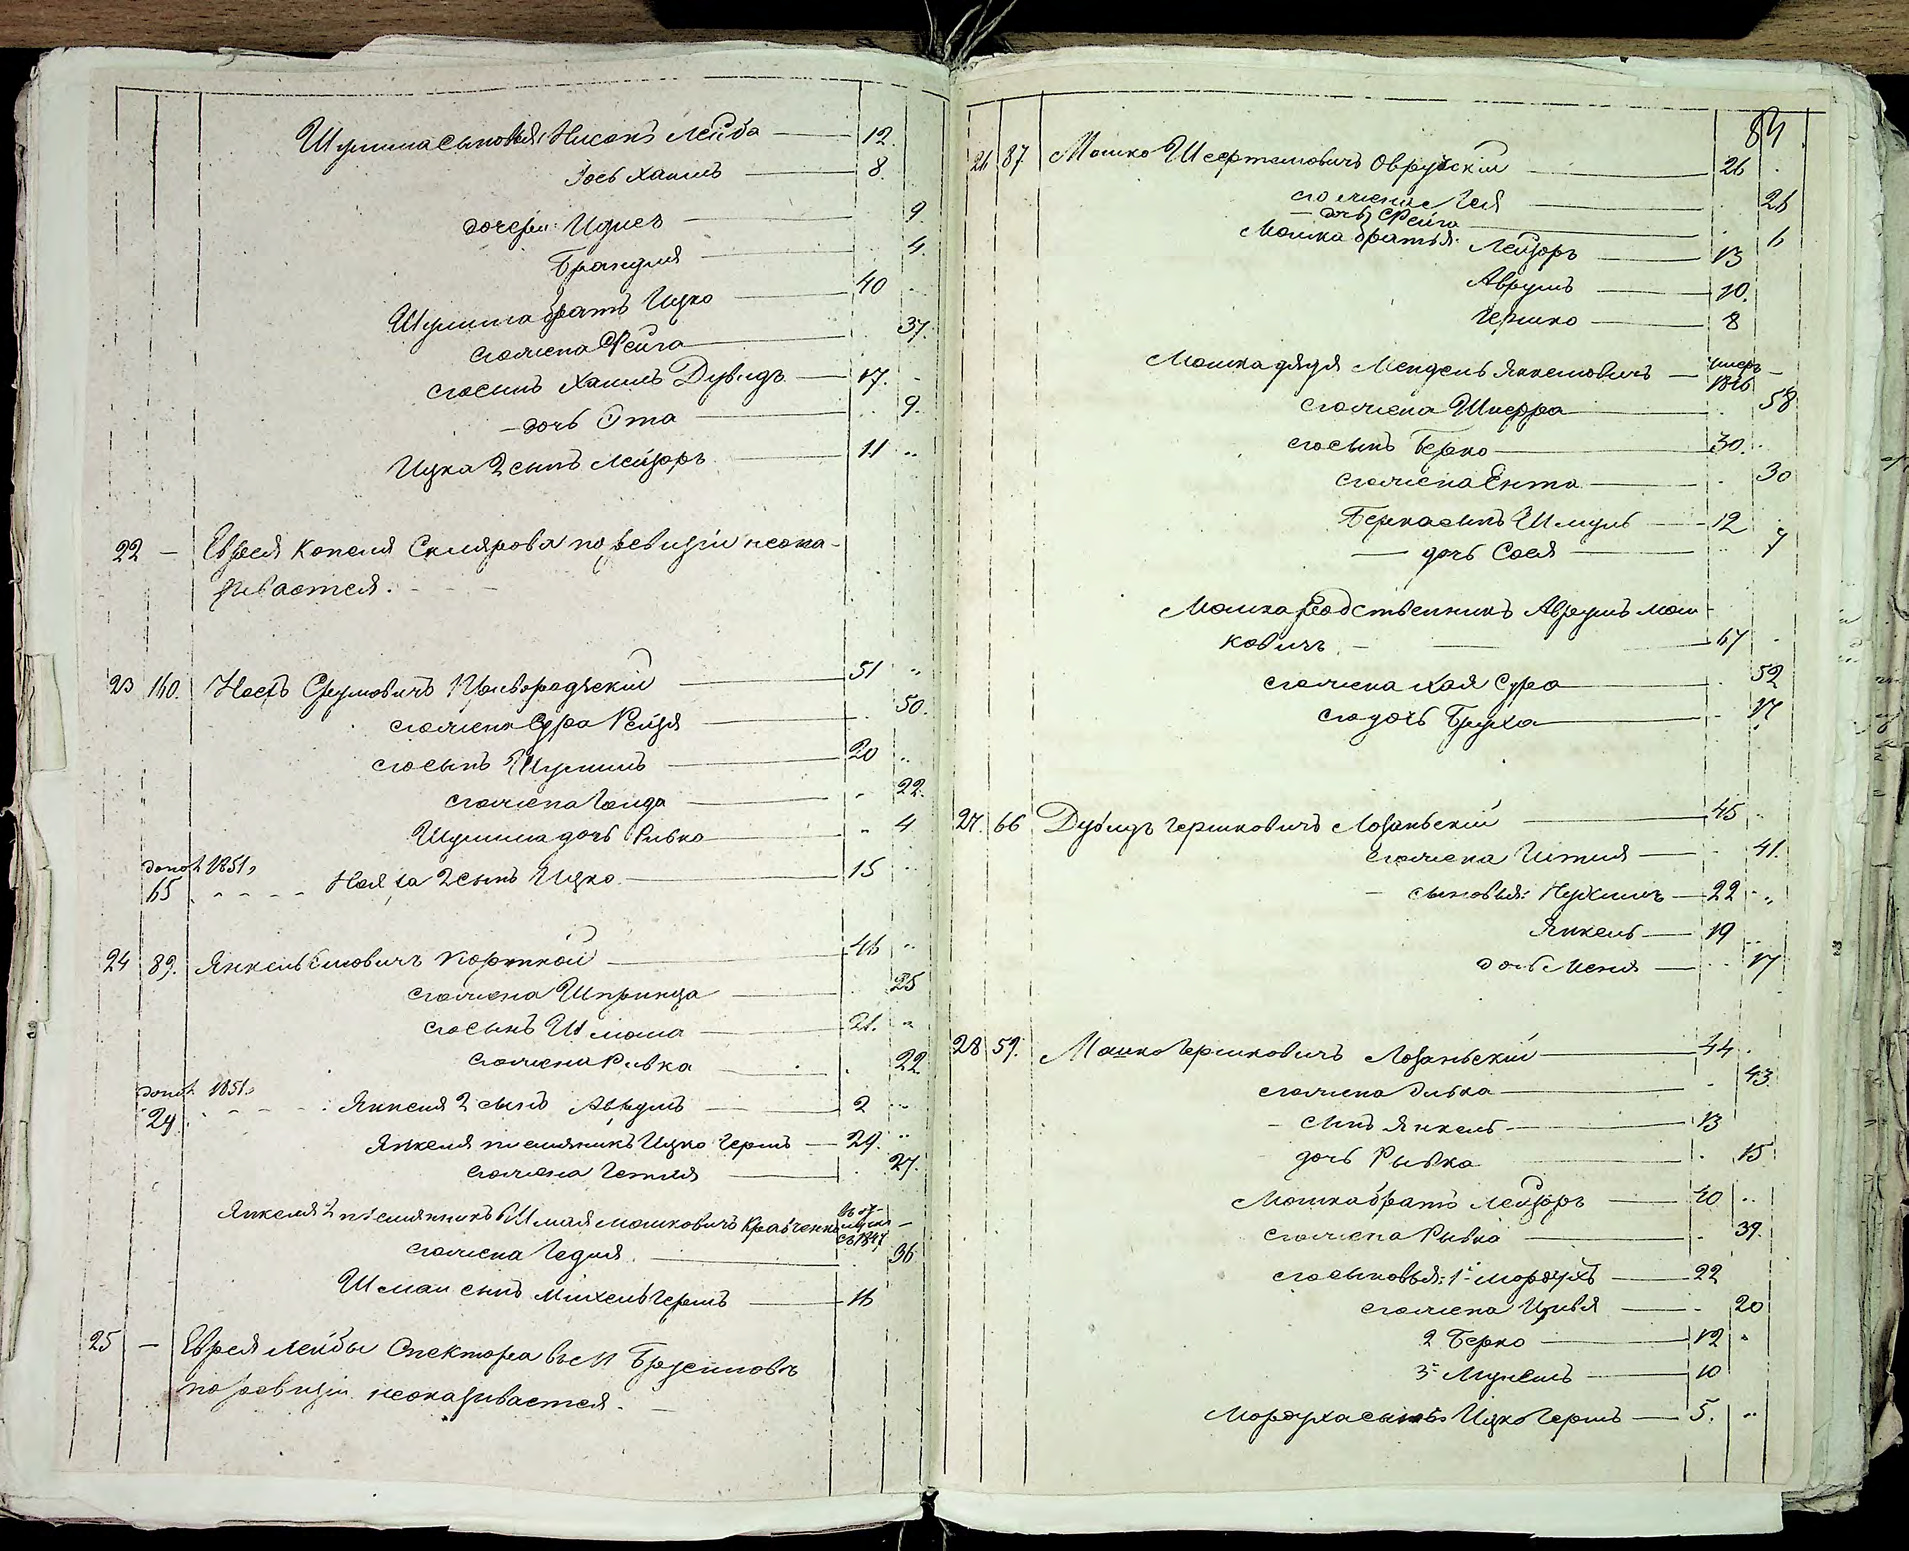 Шулима сыновья: Нисонъ Лейба — 12.
Іось Хаимъ — 8.
дочери: Идисъ — 9.
Брандля — 4.
Шулима братъ Ицко — 40
его жена Фейга — 37.
его сынъ Хаимъ Дувидъ — 17.
— дочь Эта — 9.
Ицка 2 сынъ Лейзоръ — 11 „
22 — Еврея Копеля Склярова по ревизіи неока-
зывается.
23 160. Іосъ Сруловичъ — 51 „
его жена Сура Рейзя — 50.
его сынъ Шулимъ — 20 „
его жена Голда — 22.
Шулима дочь Ривка — 4
допол. 1851 г.
65 Іося 2 сынъ Ицко — 15
24 89. Янкель — 46 „
его жена Шпринца — 25
его сынъ Шлома — 21. „
его жена Ривка — 22
допол. 1851 г.
24. Янкеля 2 сынъ Аврумъ — 2 „
Янкеля племянникъ Ицко Гершъ — 29. „
его жена Гитля — 27.
Янкеля 2 племянникъ Шмая Мошковичъ Кравченко —
съ 1847
его жена Годля — 36
Шмаи сынъ Михель Гершъ — 16
25 — Еврея Лейбы Спектора въ М Брусиловъ
по ревизіи неоказывается. —
84.
26 87. Мошко Шефтелевичъ Овруцкій — 26
его жена Лея — 26
— дочь Фейга — 6
Мошка братья: Лейзоръ — 13
Аврумъ — 10.
Гершко — 8
Мошка дядя Мендель Янкелевичъ — умеръ —
1846
его жена Шифра — 58
его сынъ Берко — 30.
его жена Ента — 30
Берка сынъ Шмуль — 12
— дочь Сося — 7
Мошка родственникъ Аврумъ Мош-
ковичъ. — 67
его жена Хая Сура — 52
его дочь Бруха — 17
27. 66 Дувидъ Гершковичъ Лозаньскій — 45
его жена Гитля — 41.
— сыновья: Нухимъ — 22 „
Янкель — 19
дочь Меня — 17
28 59. Мошко Гершковичъ Лозаньскій — 44
его жена — 43
— сынъ Янкель — 13
дочь Рывка — 15
Мошка братъ Лейзоръ — 40 „
его жена Рывка — 39.
его сыновья: 1й Мордухъ — 22
его жена Цивья — 20
2 Берко — 12 „
3й — 10
Мордуха сынъ Ицко Гершъ — 5. „